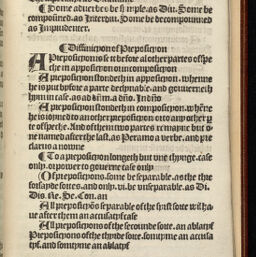 ¶Some aduerbes be simple. as Diu. Some be
compouned. as Interdiu. Some be decompouned
as Imprudenter.
¶Diffinicyon of Preposicyon
A Preposicyon is set before all other partes of spe
che in apposicyon or in composicyon
A preposicyon stondeth in apposycyon. whenne
he is put byfore a parte declynable. and gouuerneth
hym in case. as ad
A preposicyon stondeth in composicyon. whēne
he is ioyned to another preposicyon or to any other p
te of speche. And of them two partes remayne but o
ne named after the last. as Peramo a verbe. and pre
clarus a nowne
¶To a preposicyon longeth but one thynge. case
only. or power to gouerne case only
Of preposicyons. some be separable. as the thre
forsayde sortes. and only. vi. be vnseparable. as Di
Dis. Re. Se. Con. an
All preposicyōs separable of the fyrst sorte wil ha
ue after them an accusatyf case
All preposicyons of the secounde sorte. an ablatyf
Preposicyons of the thyrde sorte. somtyme an accusa
tyf. and somtyme an ablatyf